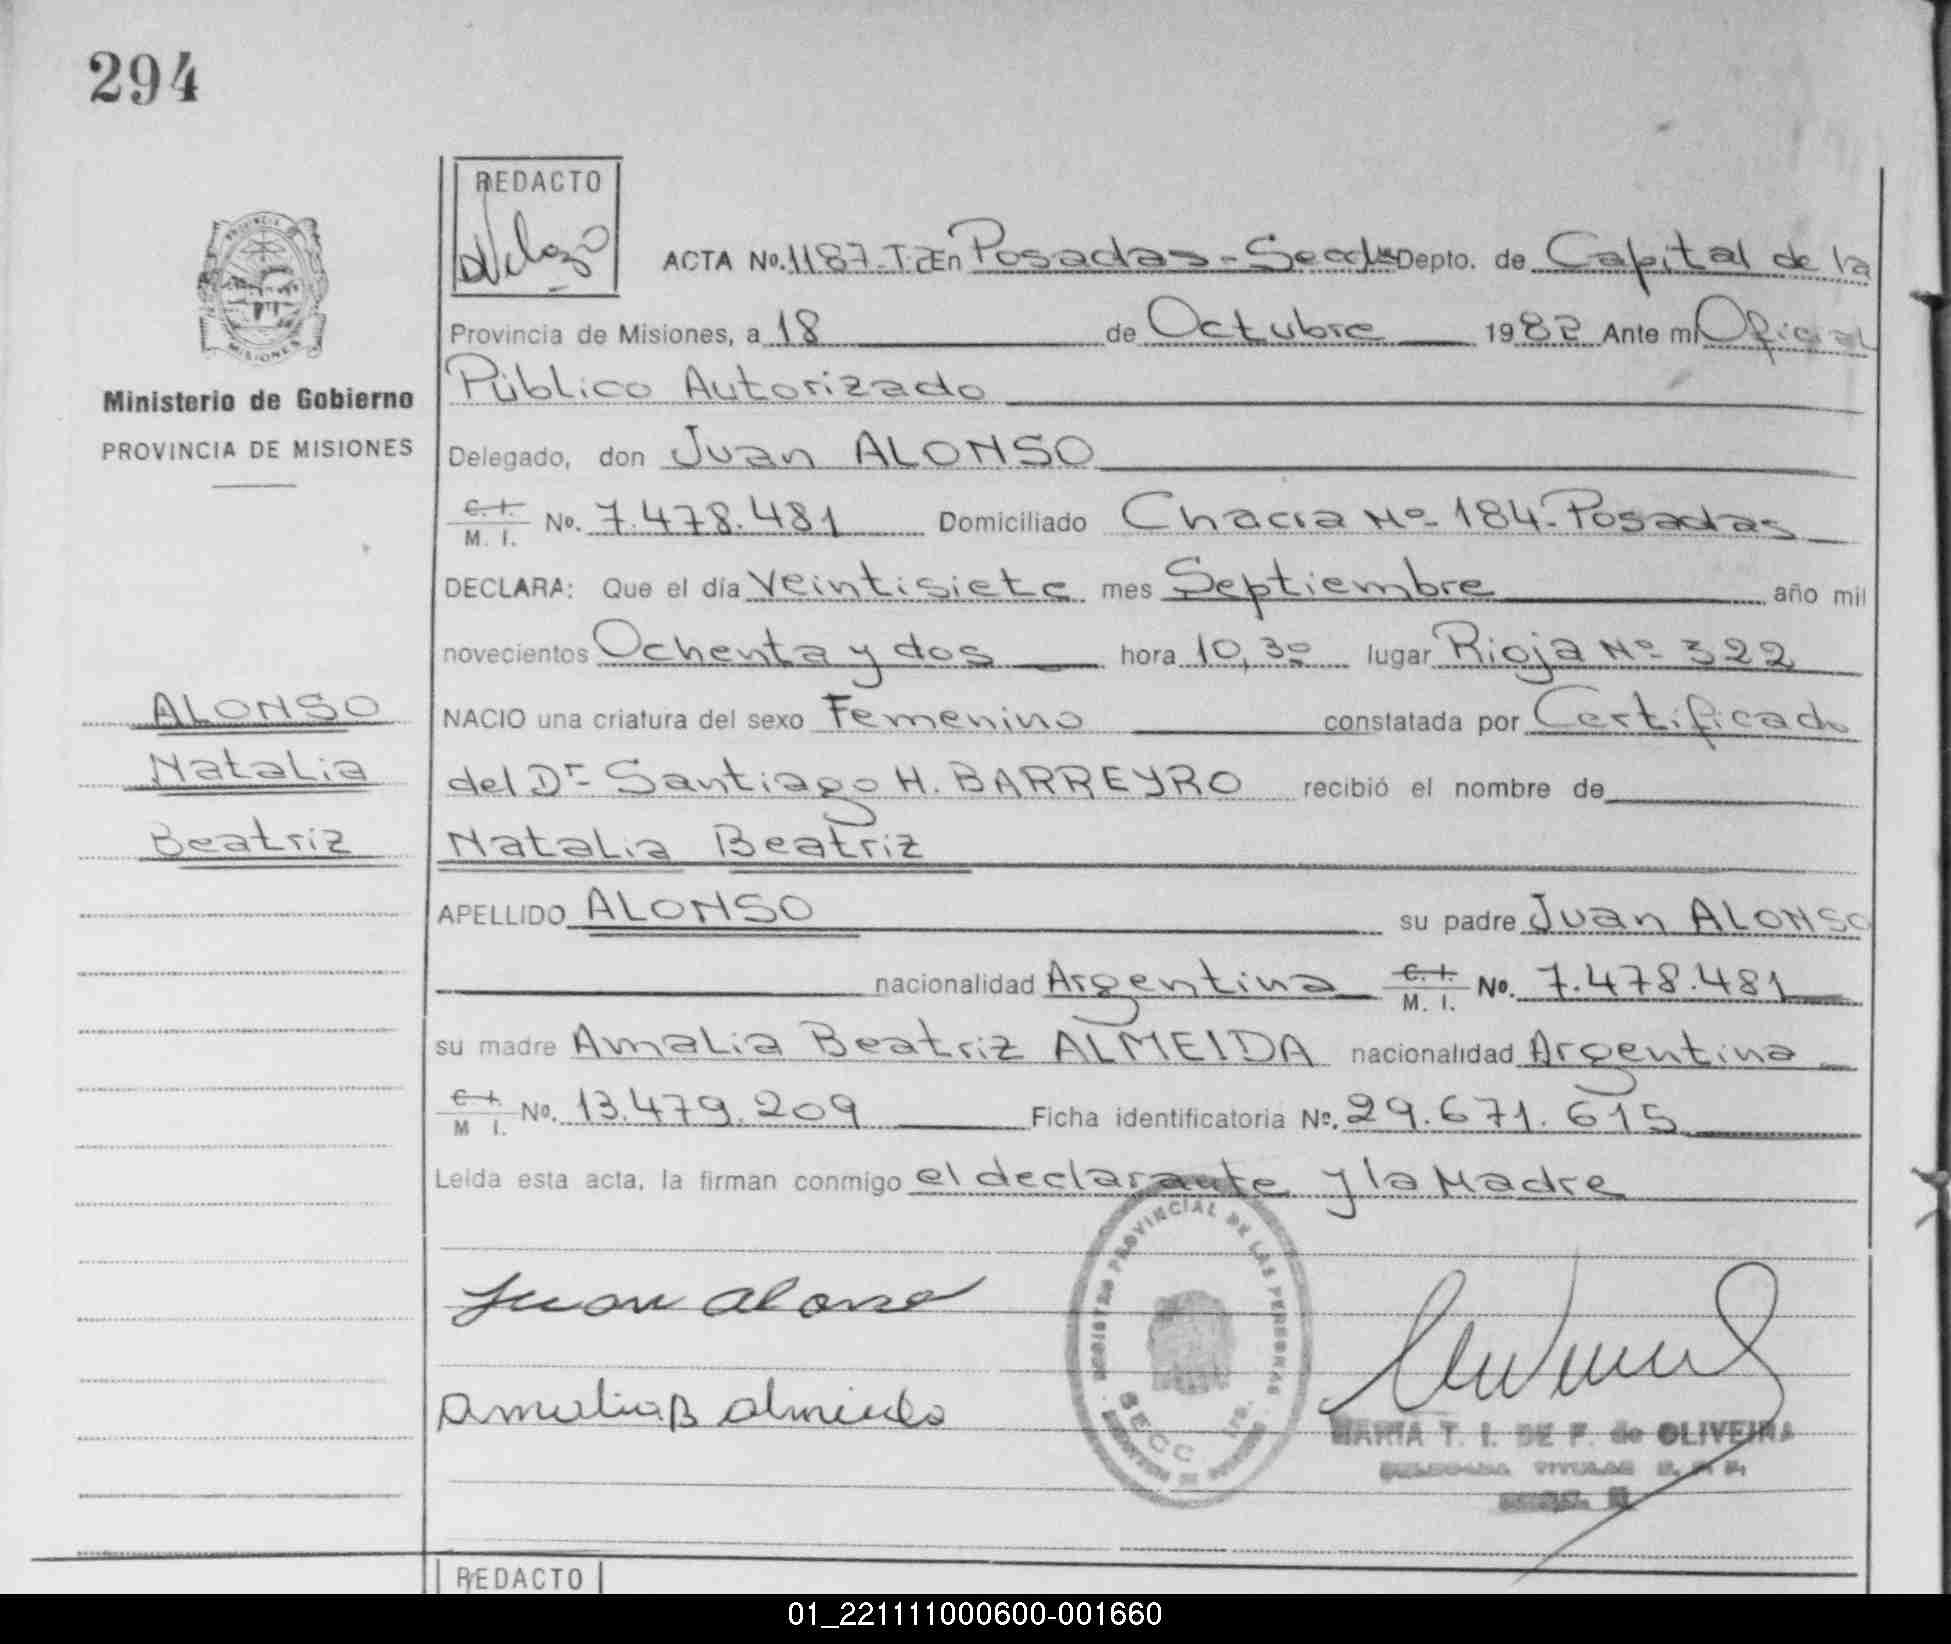 294
REDACTO
PROVINCIA DE
MISIONES
Ministerio de Gobierno
PROVINCIA DE MISIONES
ACTA No. 1187-T. 2 En Posadas - Depto. de Capital de la
Provincia de Misiones, a 18 de Octubre 1982 Ante mi Oficial
Público Autorizado
Delegado, don Juan ALONSO
C. I. M. I. No. 7.478.481 Domiciliado Chacra Nº 184-Posadas
DECLARA: Que el día Veintisiete mes Septiembre año mil
novecientos Ochenta y dos hora 10,30 lugar Rioja Nº 322
NACIO una criatura del sexo Femenino constatada por Certificado
del Dr Santiago H. BARREYRO recibió el nombre de
Natalia Beatriz
APELLIDO ALONSO su padre Juan ALONSO
nacionalidad Argentina C. I. M. I. No. 7.478.481
su madre Amalia Beatriz ALMEIDA nacionalidad Argentina
C. I. M. I. No. 13.479.209 Ficha identificatoria No. 29.671.615
Leida esta acta, la firman conmigo el declarante y la Madre
ALONSO
Natalia
Beatriz
Juan Alonso
Amalia B Almeida
REGISTRO PROVINCIAL DE LAS PERSONAS
SECC
MARIA T. I. DE F. de OLIVEIRA
REDACTO
01_221111000600-001660